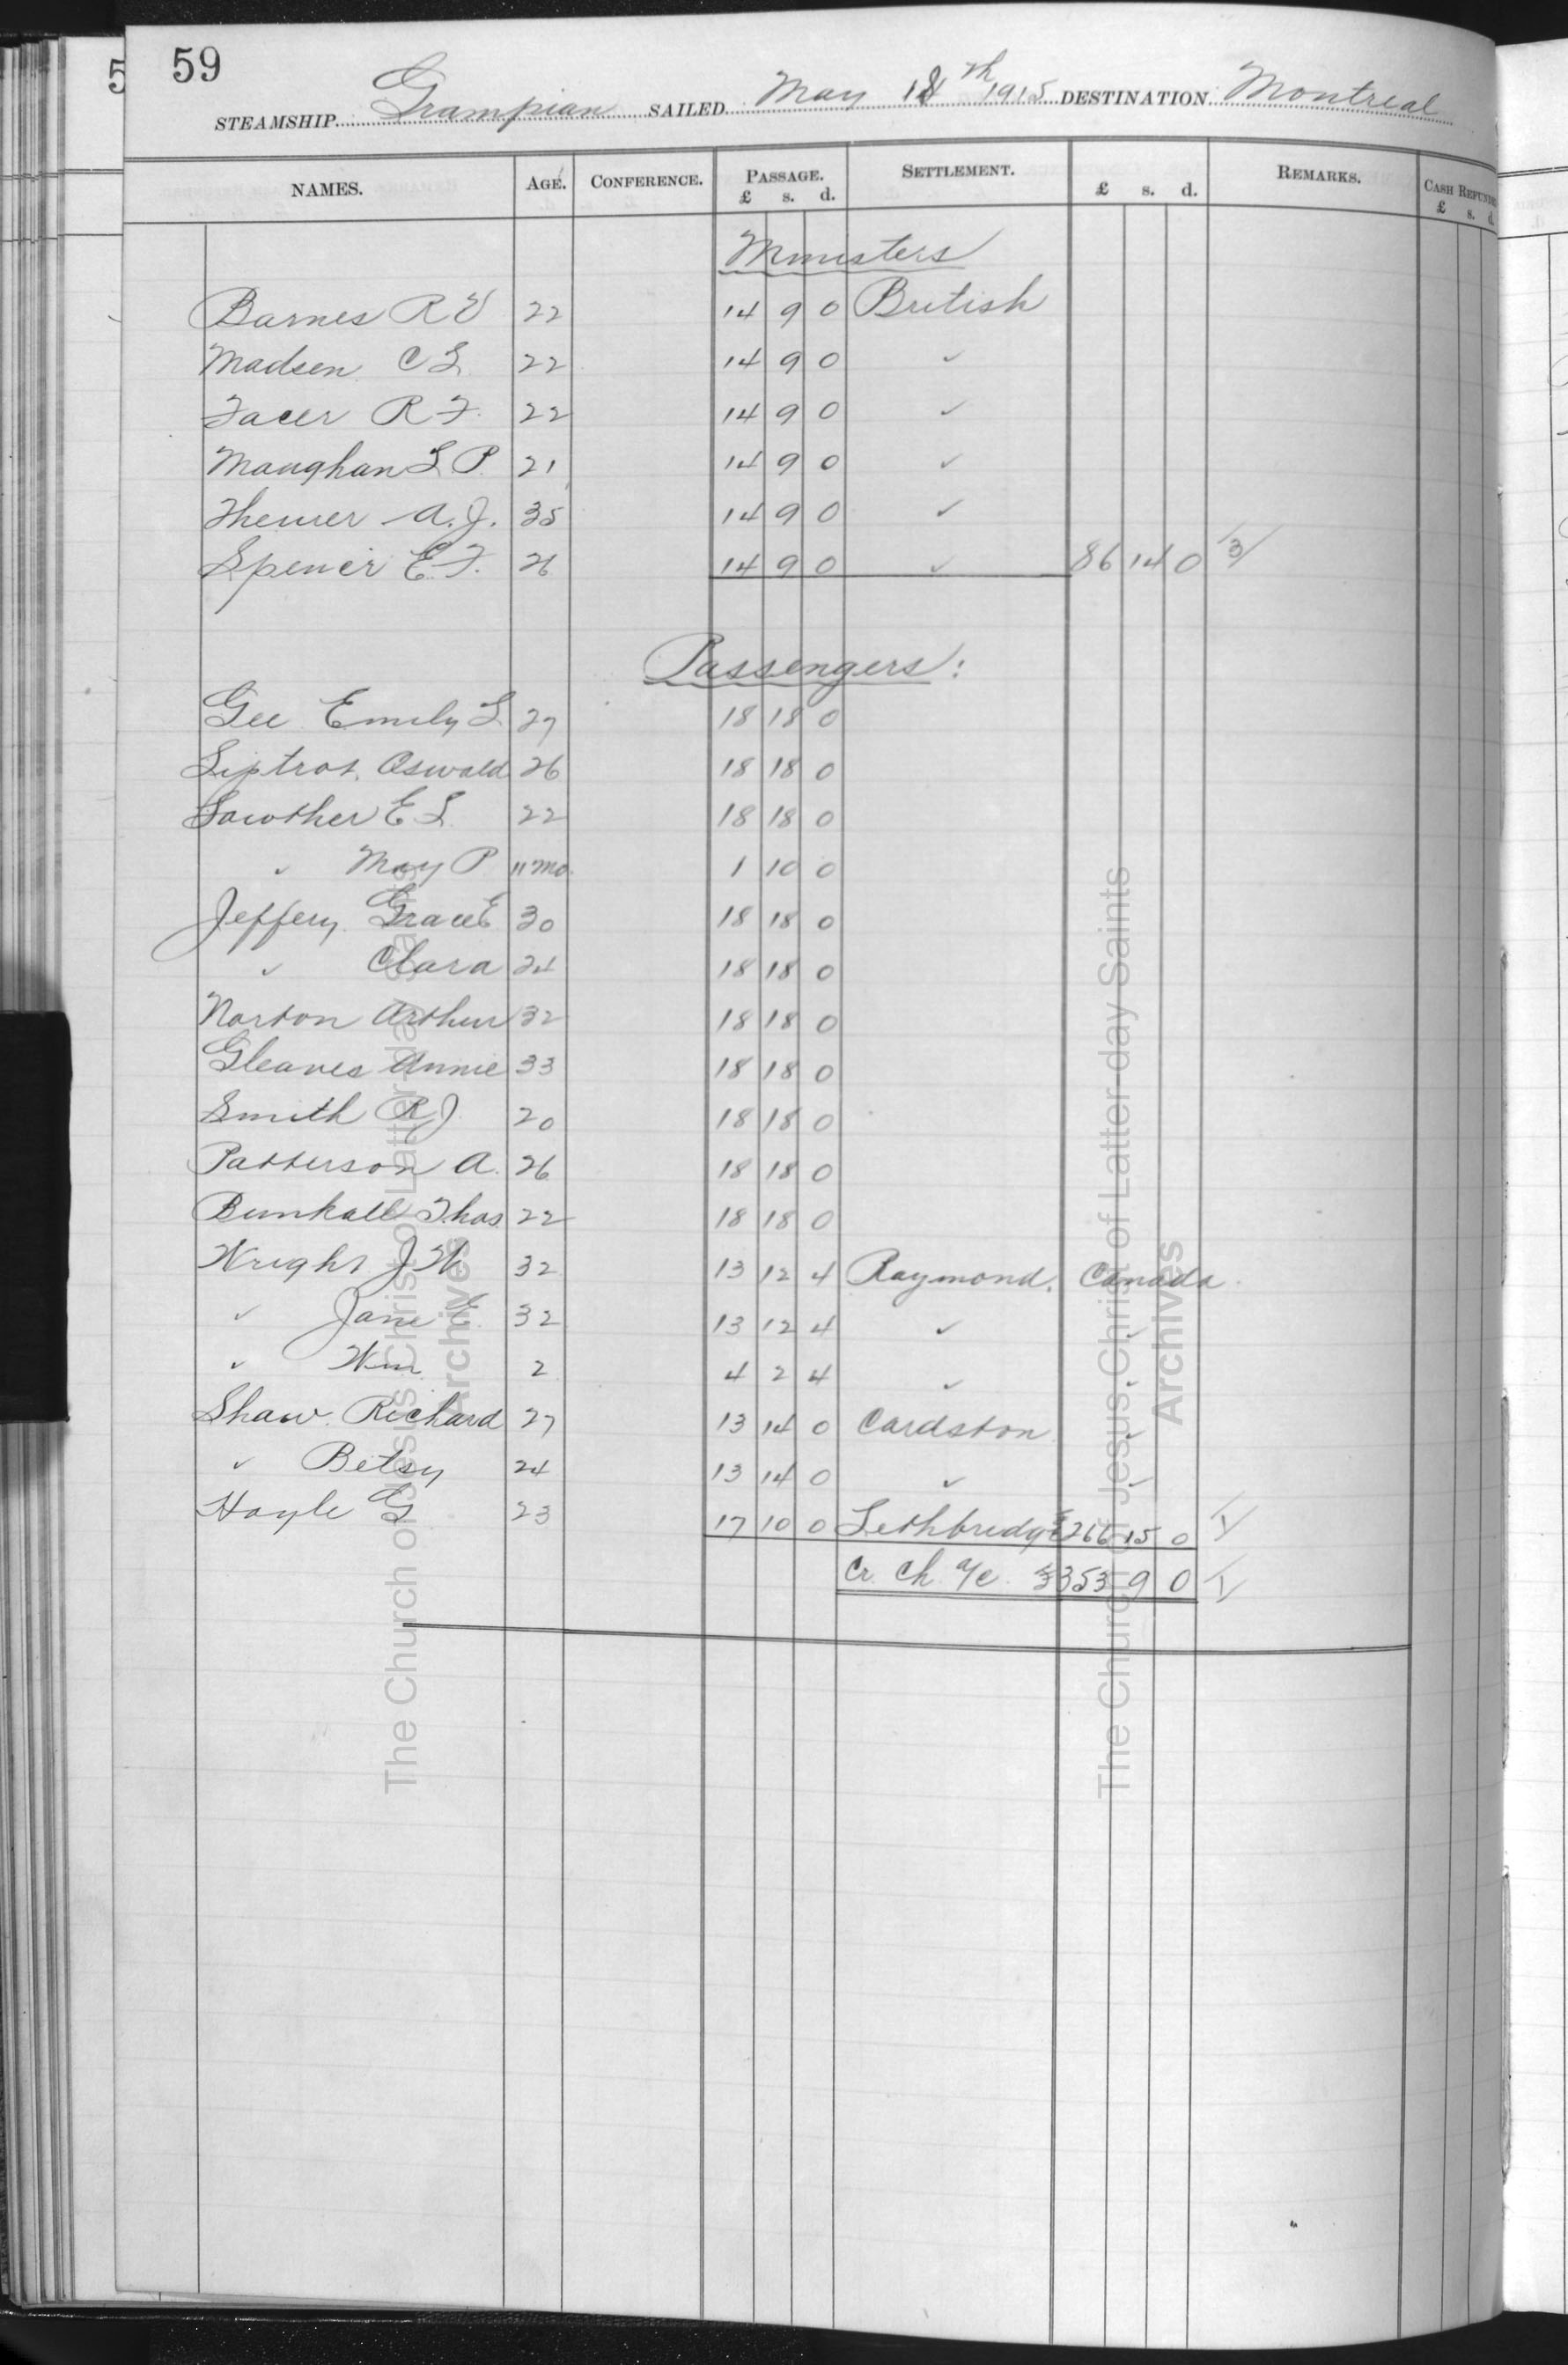 59
5
STEAMSHIP Grampian SAILED May 18th 1915 DESTINATION Montreal
NAMES. AGE. CONFERENCE. PASSAGE. £ s. d. SETTLEMENT. £ s. d. REMARKS. CASH REFUNDED £ s. d.
Ministers
Barnes R V 22 14 9 0 British
Madsen C L 22 14 9 0 ✓
Facer R F. 22 14 9 0 ✓
Maughan L P. 21 14 9 0 ✓
Theurer A. J. 35 14 9 0 ✓
Spencer E. F. 26 14 9 0 ✓ 86 14 0 3/
Passengers:
Gee Emily L 27 18 18 0
Liptrot, Oswald 26 18 18 0
Lowther E L 22 18 18 0
✓ May P 11 mo. 1 10 0
Jeffery Grace E 30 18 18 0
✓ Clara 24 18 18 0
Norton Arthur 32 18 18 0
Gleaves Annie 33 18 18 0
Smith R J 20 18 18 0
Patterson A. 26 18 18 0
Bunkall Thos 22 18 18 0
Wright J W 32 13 12 4 Raymond, Canada.
✓ Jane E. 32 13 12 4 ✓ ✓
✓ Wm 2 4 2 4 ✓ ✓
Shaw. Richard 27 13 14 0 Cardston ✓
✓ Betsy 24 13 14 0 ✓ ✓
Hoyle G 23 17 10 0 Lethbridge £266 15 0 1/
Cr. Ch. a/c. £353 9 0 1/
The Church of Jesus Christ of Latter-day Saints
Archives
The Church of Jesus Christ of Latter-day Saints
Archives